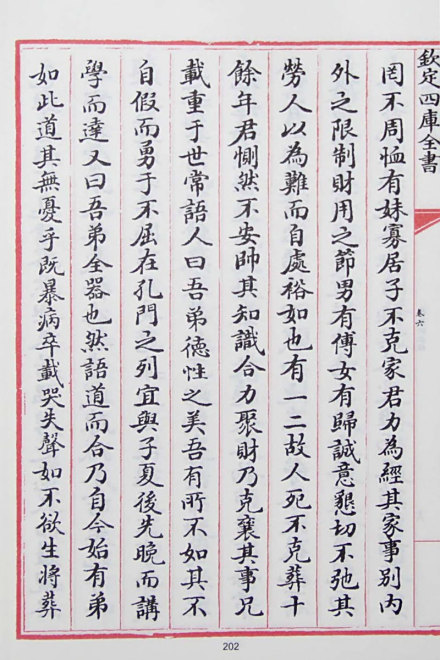 欽定四庫全書
卷六
罔不周恤有妹寡居子不克家君力為經其家事别内
外之限制財用之節男有傳女有歸誠意懇切不弛其
勞人以為難而自處裕如也有一二故人死不克葬十
餘年君惻然不安帥其知識合力聚財乃克襄其事兄
載重于世常語人曰吾弟徳性之美吾有所不如其不
自假而勇于不屈在孔門之列宜與子夏後先晚而講
學而達又曰吾弟全器也然語道而合乃自今始有弟
如此道其無憂乎既暴病卒載哭失聲如不欲生將葬
202